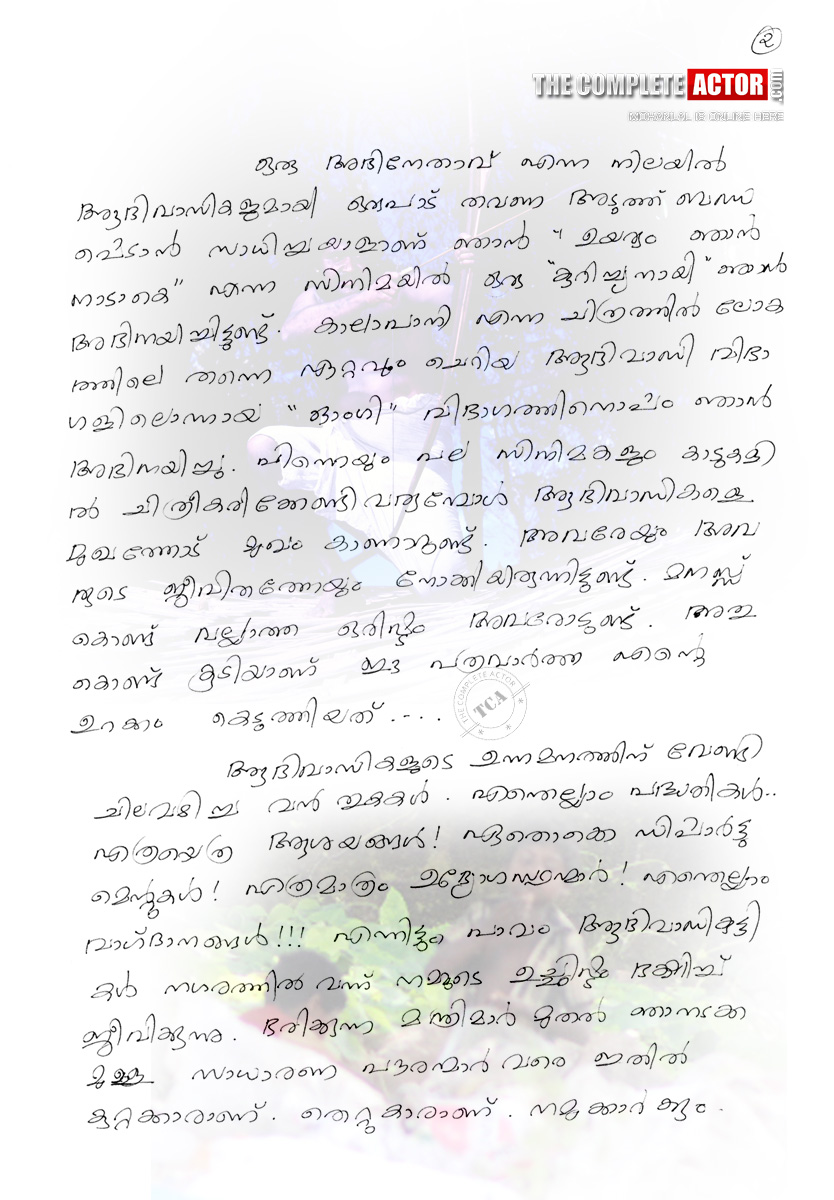 ൨
THE COMPLETE ACTOR .com
MOHANLAL IS ONLINE HERE
ഒരു അഭിനേതാവ് എന്ന നിലയിൽ
ആദിവാസികളുമായി ഒരുപാട് തവണ അടുത്ത് ബന്ധ
പ്പെടാൻ സാധിച്ചയാളാണ് ഞാൻ " ഉയരും ഞാൻ
നാടാകെ" എന്ന സിനിമയിൽ ഒരു "കുറിച്ച്യനായി" ഞാൻ
അഭിനയിച്ചിട്ടുണ്ട്. കാലാപാനി എന്ന ചിത്രത്തിൽ ലോക
ത്തിലെ തന്നെ ഏറ്റവും ചെറിയ ആദിവാസി വിഭാ
ഗങ്ങളിലൊന്നായ "ഓംഗി" വിഭാഗത്തിനൊപ്പം ഞാൻ
അഭിനയിച്ചു. പിന്നെയും പല സിനിമകളും കാടുകളി
ൽ ചിത്രീകരിക്കേണ്ടിവരുമ്പോൾ ആദിവാസികളെ
മുഖത്തോട് മുഖം കാണാറുണ്ട്. അവരേയും അവ
രുടെ ജീവിതത്തേയും നോക്കിയിരുന്നിട്ടുണ്ട്. മനസ്സ്
കൊണ്ട് വല്ലാത്ത ഒരിഷ്ടം അവരോടുണ്ട്. അതു
കൊണ്ട് കൂടിയാണ് ഈ പത്രവാർത്ത എന്റെ
ഉറക്കം കെടുത്തിയത്....
THE COMPLETE ACTOR
TCA
ആദിവാസികളുടെ ഉന്നമനത്തിന് വേണ്ടി
ചിലവഴിച്ച വൻ തുകകൾ. എന്തെല്ലാം പദ്ധതികൾ..
എത്രയെത്ര ആശയങ്ങൾ! ഏതൊക്കെ ഡിപ്പാർട്ടു
മെന്റുകൾ! എത്രമാത്രം ഉദ്യോഗസ്ഥന്മാർ! എന്തെല്ലാം
വാഗ്ദാനങ്ങൾ!!! എന്നിട്ടും പാവം ആദിവാസികുട്ടി
കൾ നഗരത്തിൽ വന്ന് നമ്മുടെ ഉച്ചിഷ്ടം ഭക്ഷിച്ച്
ജീവിക്കുന്നു. ഭരിക്കുന്ന മന്ത്രിമാർ മുതൽ ഞാനടക്ക
മുള്ള സാധാരണ പൗരന്മാർ വരെ ഇതിൽ
കുറ്റക്കാരാണ്. തെറ്റുകാരാണ്. നമുക്കാർക്കും.